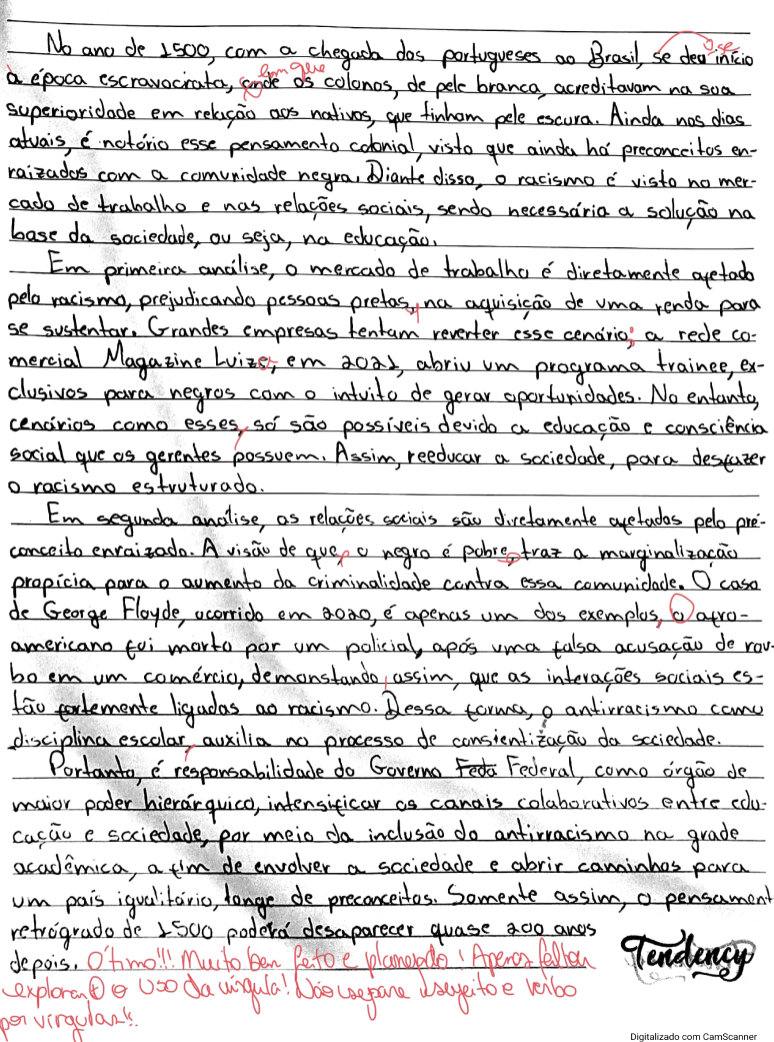 No ano de 1500, com a chegada dos portugueses ao Brasil, se deu início
-se
à época escravocrata, onde os colonos, de pele branca, acreditavam na sua
em que
superioridade em relação aos nativos, que tinham pele escura. Ainda nos dias
atuais, é notório esse pensamento colonial, visto que ainda há preconceitos en-
raizados com a comunidade negra. Diante disso, o racismo é visto no mer-
cado de trabalho e nas relações sociais, sendo necessária a solução na
base da sociedade, ou seja, na educação.
Em primeira análise, o mercado de trabalho é diretamente afetado
pelo racismo, prejudicando pessoas pretas, na aquisição de uma renda para
se sustentar. Grandes empresas tentam reverter esse cenário; a rede co-
mercial Magazine Luiza, em 2021, abriu um programa trainee, ex-
clusivos para negros com o intuito de gerar oportunidades. No entanto,
cenários como esses, só são possíveis devido a educação e consciência
social que os gerentes possuem. Assim, reeducar a sociedade, para desfazer
o racismo estruturado.
Em segunda análise, as relações sociais são diretamente afetadas pelo pré-
conceito enraizado. A visão de que, o negro é pobre, traz a marginalização
propícia para o aumento da criminalidade contra essa comunidade. O caso
de George Floyde, ocorrido em 2020, é apenas um dos exemplos, o afro-
americano foi morto por um policial, após uma falsa acusação de rou-
bo em um comércio, demonstando, assim, que as interações sociais es-
tão fortemente ligadas ao racismo. Dessa forma, o antirracismo como
disciplina escolar, auxilia no processo de consientização da sociedade.
Portanto, é responsabilidade do Governo Fede Federal, como órgão de
maior poder hierárquico, intensificar os canais colaborativos entre edu-
cação e sociedade, por meio da inclusão do antirracismo na grade
acadêmica, a fim de envolver a sociedade e abrir caminhos para
um país igualitário, longe de preconceitos. Somente assim, o pensament
retrógrado de 1500 poderá desaparecer quase 200 anos
depois. Ótimo!!! Muito bem feito e planejado! Apenas faltou
explorar + o uso da vírgula! Não separe sujeito e verbo
por vírgulas!!
Tendency
Digitalizado com CamScanner